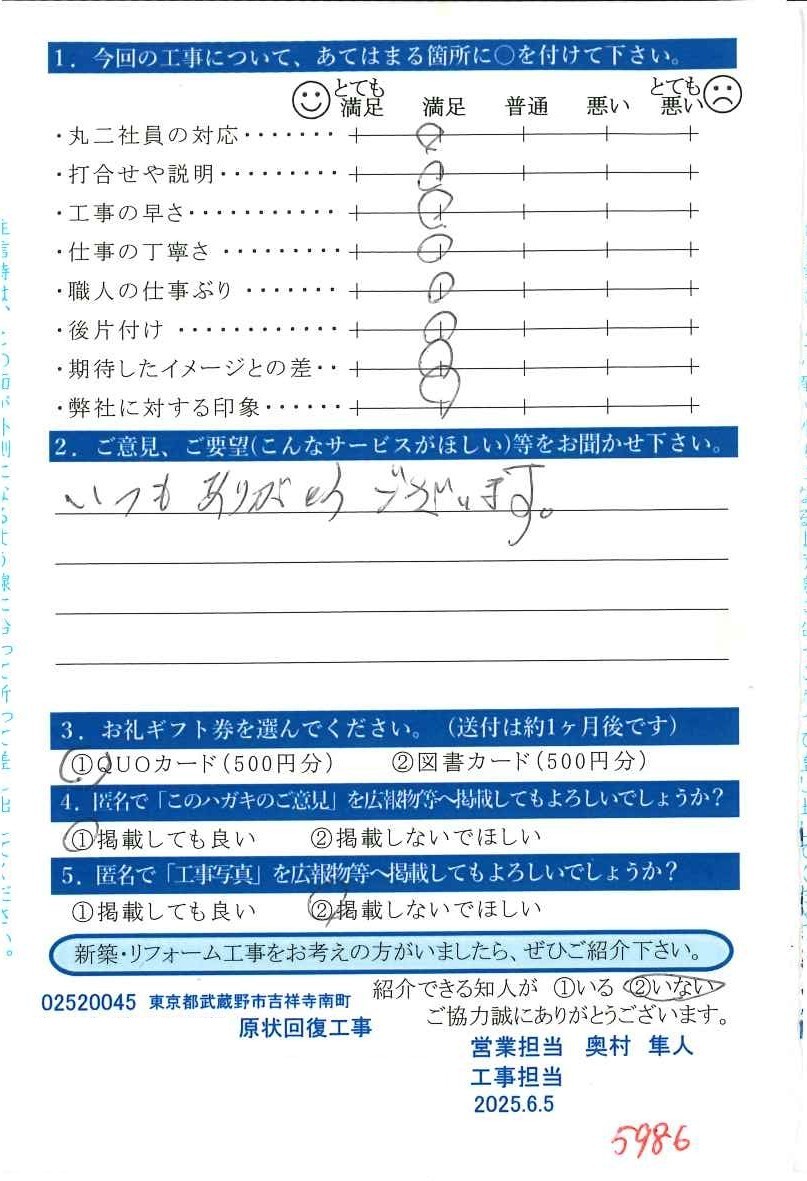 1．今回の工事について、あてはまる箇所に○を付けて下さい。
とても満足 満足 普通 悪い とても悪い
・丸二社員の対応・・・・・・・
・打合せや説明・・・・・・・・・
・工事の早さ・・・・・・・・・・・
・仕事の丁寧さ・・・・・・・・・
・職人の仕事ぶり・・・・・・・
・後片付け・・・・・・・・・・・・
・期待したイメージとの差・・
・弊社に対する印象・・・・・・
2．ご意見、ご要望(こんなサービスがほしい)等をお聞かせ下さい。
いつもありがとうございます。
3．お礼ギフト券を選んでください。（送付は約1ヶ月後です）
①QUOカード(500円分) ②図書カード(500円分)
4．匿名で「このハガキのご意見」を広報物等へ掲載してもよろしいでしょうか？
①掲載しても良い ②掲載しないでほしい
5．匿名で「工事写真」を広報物等へ掲載してもよろしいでしょうか？
①掲載しても良い ②掲載しないでほしい
新築・リフォーム工事をお考えの方がいましたら、ぜひご紹介下さい。
紹介できる知人が ①いる ②いない
02520045 東京都武蔵野市吉祥寺南町
ご協力誠にありがとうございます。
原状回復工事
営業担当 奥村 隼人
工事担当
2025.6.5
5986